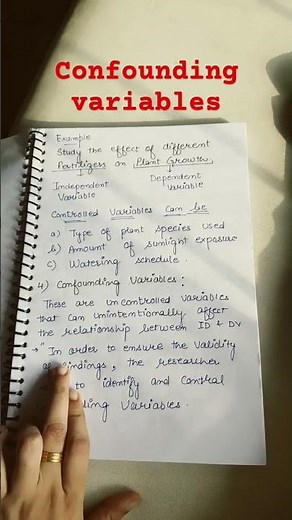 Confounding
variables
Example
Study the effect of different
Fertilizers on Plant Growth.
Independent Variable
Dependent Variable
Controlled Variables can be
a) Type of plant species used
b) Amount of sunlight exposure
c) Watering schedule.
4) Confounding Variables:
These are uncontrolled variables
that can unintentionally affect
the relationship between ID & DV
→ "In order to ensure the validity
of findings, the researcher
to identify and control
Variables.